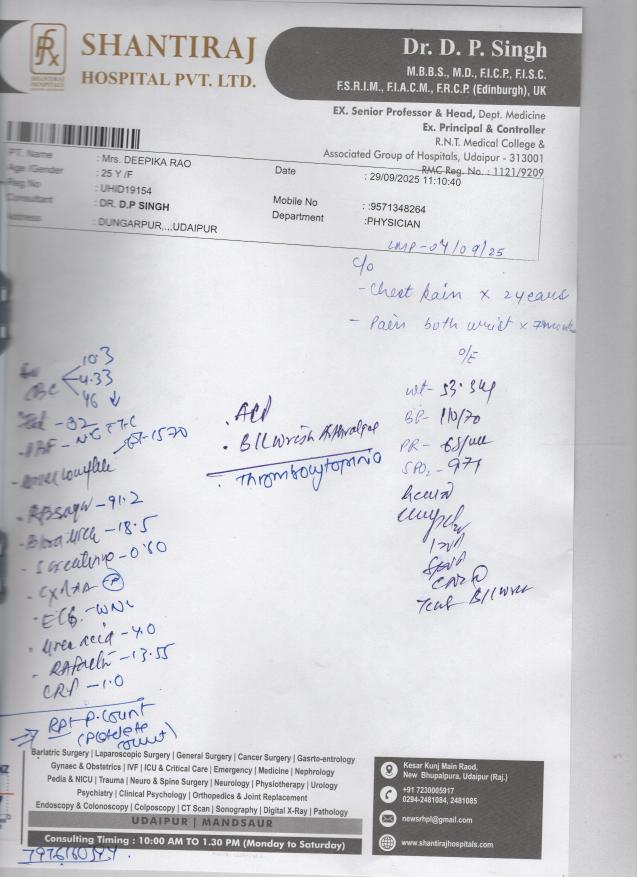 SHANTIRAJ
HOSPITAL PVT. LTD.
SHANTIRAJ
HOSPITALS
Dr. D. P. Singh
M.B.B.S., M.D., F.I.C.P., F.I.S.C.
F.S.R.I.M., F.I.A.C.M., F.R.C.P. (Edinburgh), UK
EX. Senior Professor & Head, Dept. Medicine
Ex. Principal & Controller
R.N.T. Medical College &
Associated Group of Hospitals, Udaipur - 313001
RMC Reg. No. : 1121/9209
PT. Name : Mrs. DEEPIKA RAO
Age /Gender : 25 Y /F
Date : 29/09/2025 11:10:40
Reg No : UHID19154
Consultant : DR. D.P SINGH
Mobile No :9571348264
Department :PHYSICIAN
Address : DUNGARPUR,...UDAIPUR
LMP - 07/09/25
C/o
- Chest Pain x 2 years
- Pain both wrist x 7
O/E
CBC 10.3
4.33
46 ↓
- 32
wt - 53.
BP - 110/70
PR - 68/
SPO2 - 97
1570
. B/L Wrist Arthralgia
. Thrombocytopenia
- RBSugar - 91.2
- Blood Urea - 18.5
- S creatinine - 0.60
- ECG - WNL
- Uric acid - 4.0
- RA factor - 13.55
CRP - 1.0
⇒ Rpt P. Count
(Platelete Count)
Bariatric Surgery | Laparoscopic Surgery | General Surgery | Cancer Surgery | Gasrto-entrology
Gynaec & Obstetrics | IVF | ICU & Critical Care | Emergency | Medicine | Nephrology
Pedia & NICU | Trauma | Neuro & Spine Surgery | Neurology | Physiotherapy | Urology
Psychiatry | Clinical Psychology | Orthopedics & Joint Replacement
Endoscopy & Colonoscopy | Colposcopy | CT Scan | Sonography | Digital X-Ray | Pathology
UDAIPUR | MANDSAUR
Consulting Timing : 10:00 AM TO 1.30 PM (Monday to Saturday)
Kesar Kunj Main Raod,
New Bhupalpura, Udaipur (Raj.)
+91 7230005917
0294-2481084, 2481085
newsrhpl@gmail.com
www.shantirajhospitals.com